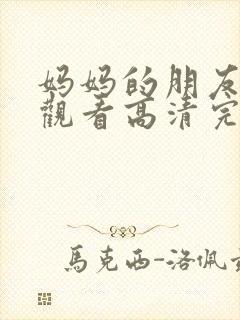 妈妈的朋友
觀看高清完
馬克西-洛佩